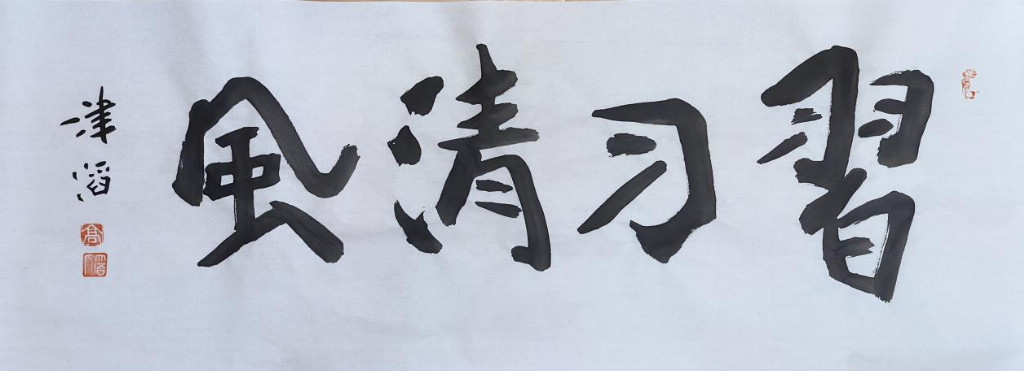 習习清風
津滔
高